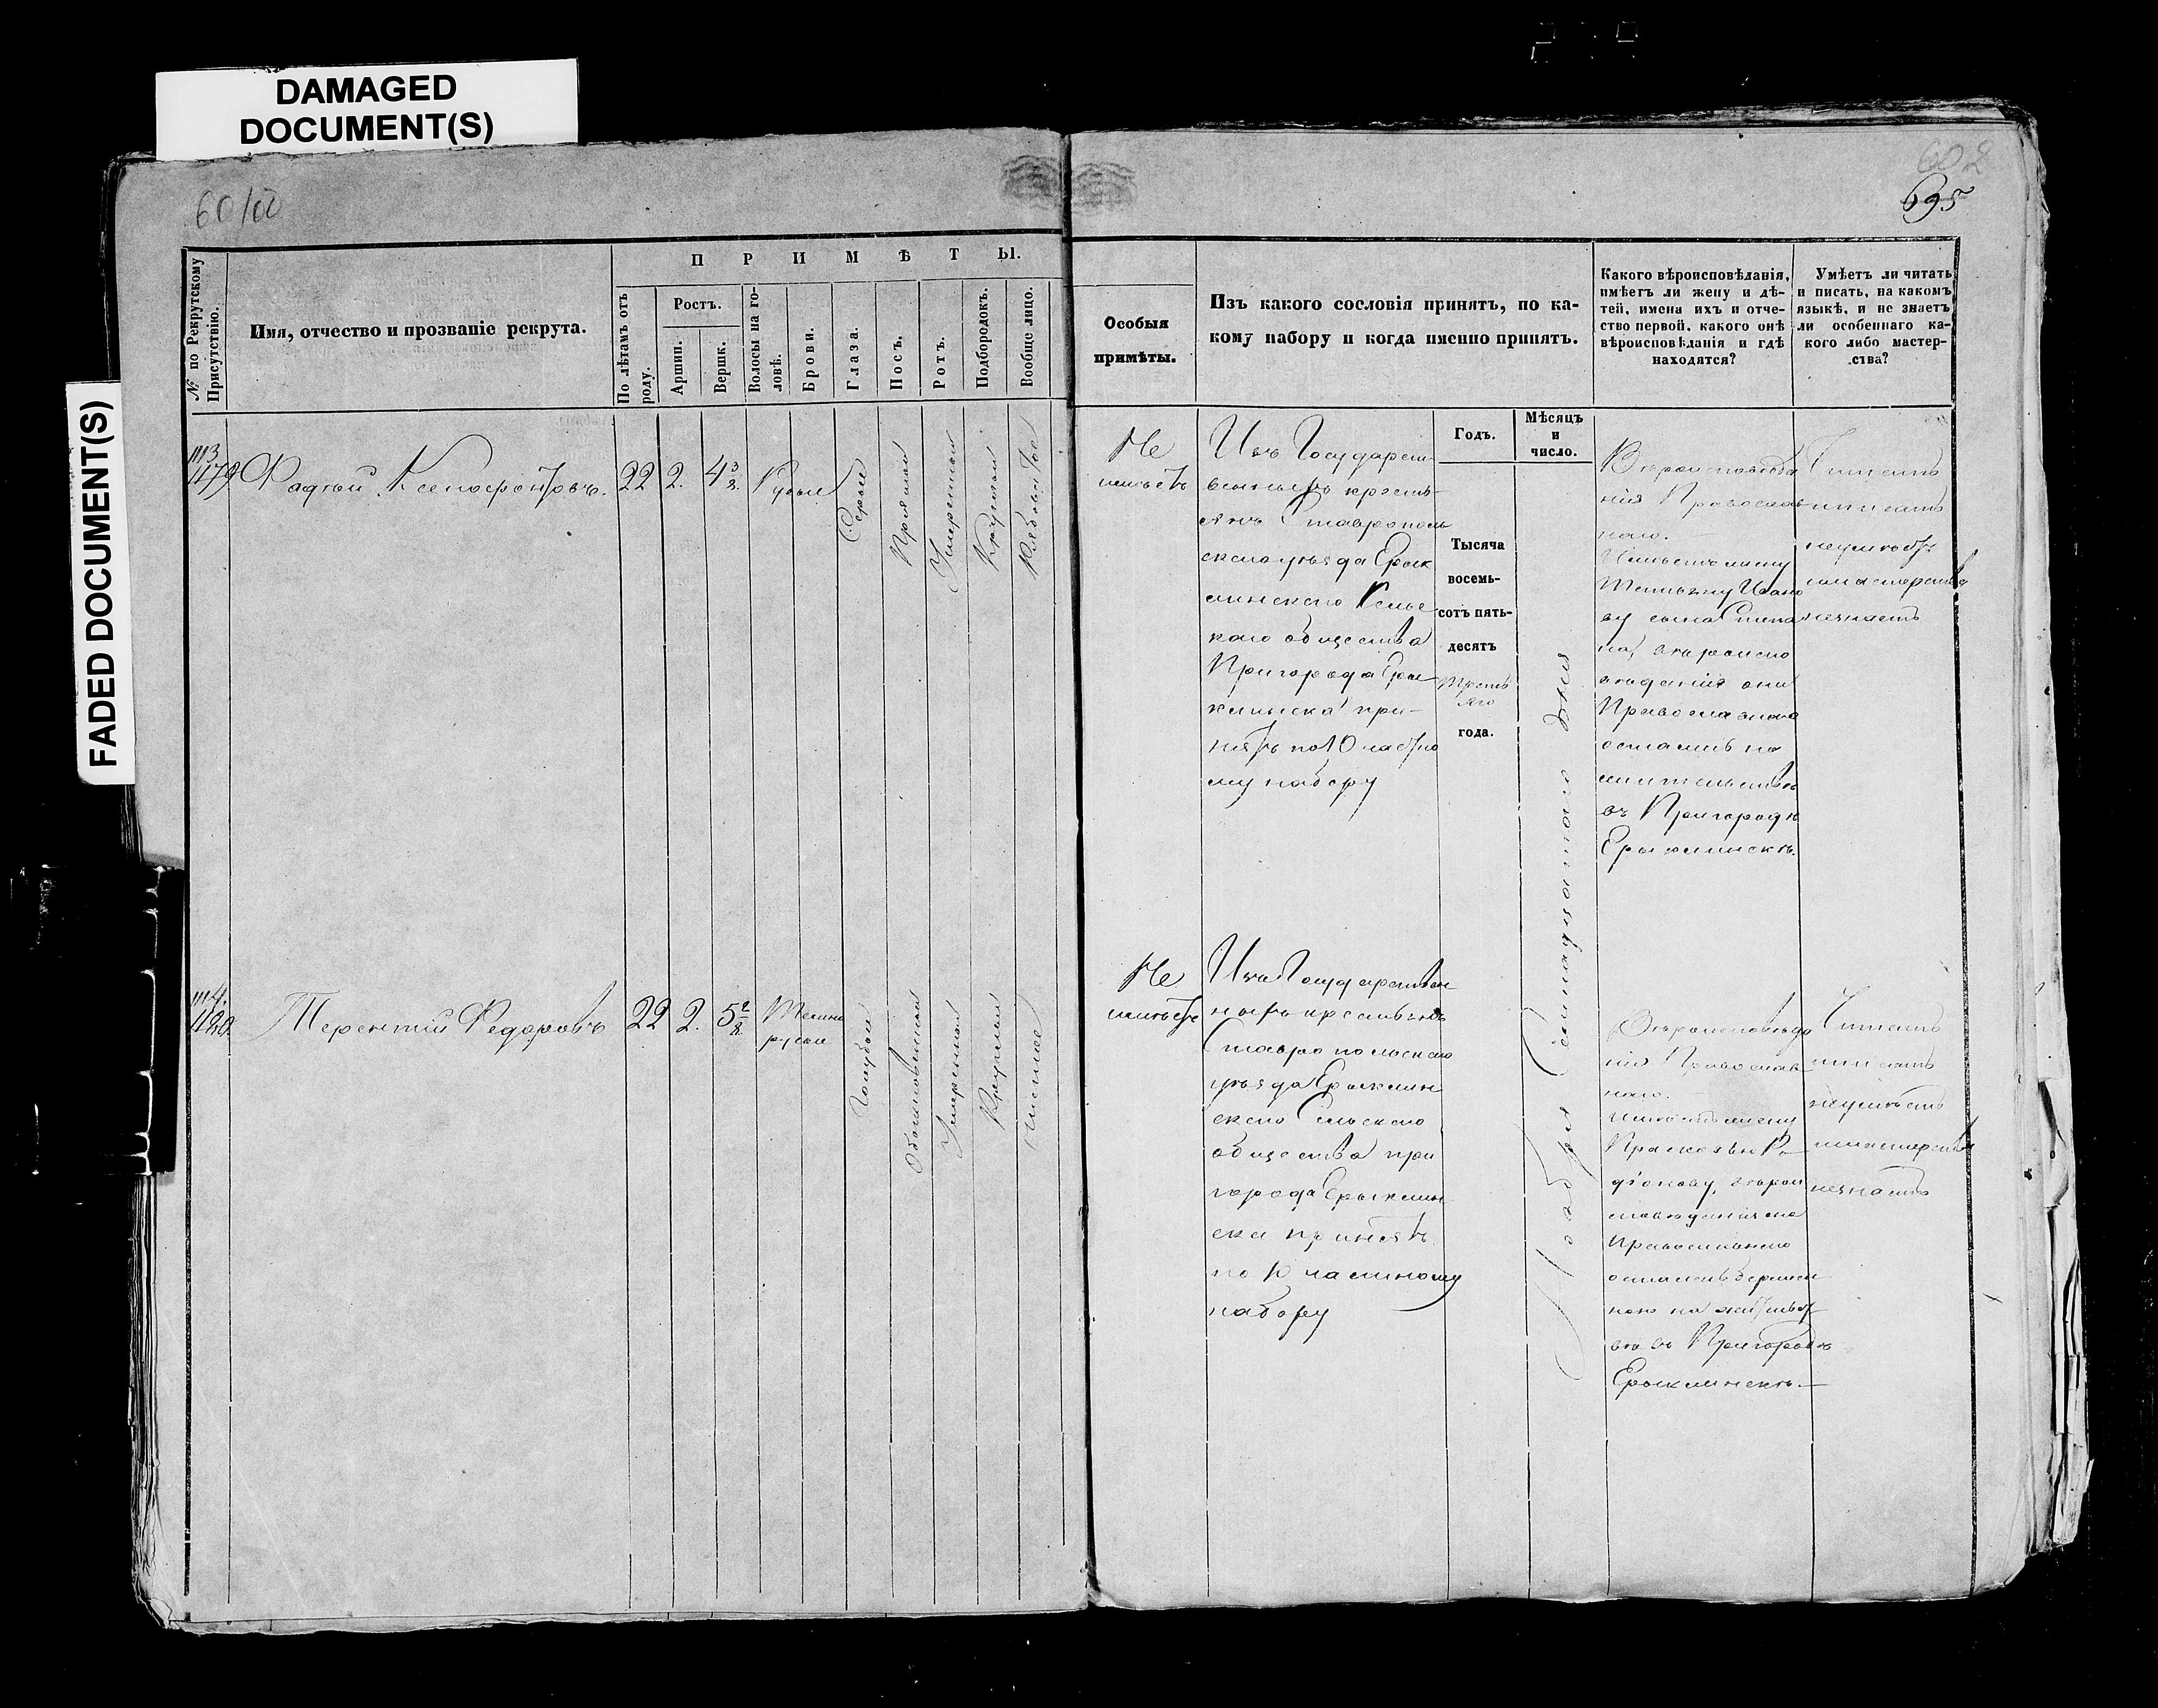 DAMAGED
DOCUMENT(S)
FADED DOCUMENT(S)
695
П Р И М Ѣ Т Ы.
№ по Рекрутскому
Присутствію.
Имя, отчество и прозваніе рекрута.
По лѣтамъ отъ
роду.
Ростъ.
Аршин.
Вершк.
Волосы на го-
ловѣ.
Брови.
Глаза.
Носъ.
Ротъ.
Подбородокъ.
Вообще лицо.
Особыя
примѣты.
Изъ какого сословія принятъ, по ка-
кому набору и когда именно принятъ.
Какого вѣроисповѣданія,
имѣетъ ли жену и дѣ-
тей, имена ихъ и отче-
ство первой, какого онѣ
вѣроисповѣданія и гдѣ
находятся?
Умѣетъ ли читать
и писать, на какомъ
языкѣ, и не знаетъ
ли особеннаго ка-
кого либо мастер-
ства?
Годъ.
Мѣсяцъ
и
число.
Тысяча
восемь-
сотъ пять-
десятъ
Треть
яго
года.
Ноября Семнадцатаго дня
1113
1179
Фадѣй Ксенофонтовъ.
22 2. 4 3/8.
Русые
Серые
Прямой
Умеренный
Круглый
Рябоватое
Не
имѣетъ
Изъ Государст-
венныхъ кресть-
янъ Ставрополь
скаго уѣзда Ерык
линскаго Сельс
каго общества
Пригорода Еры
клинска при-
нятъ по 10 частно
му набору
Вѣроисповѣда
нія Православ
наго.
Имѣетъ жену
Татьяну Ивано
ву сына Степа
на, вѣроиспо
вѣданія они
Православнаго
остались на
жительствѣ
въ Пригородѣ
Ерыклинскѣ.
Читать
писать
неумѣетъ
мастерства
незнаетъ
1114
1180
Терентій Федоровъ
22 2. 5 2/8
Темно
русые
Голубые
Обыкновенный
Умеренный
Круглый
Чистое
Не
имѣетъ
Изъ Государствен
ныхъ крестьянъ
Ставропольскаго
уѣзда Ерыклин
скаго Сельскаго
общества при
города Ерыклин
ска принятъ
по 10 частному
набору
Вѣроисповѣда
нія Православ
наго.
имѣетъ жену
Прасковью Ро
діонову, вѣроис
повѣданія она
Православнаго
осталась беремен
ною на жительст
вѣ въ Пригородѣ
Ерыклинскѣ.—
Читать
писать
неумѣетъ
мастерства
незнаетъ